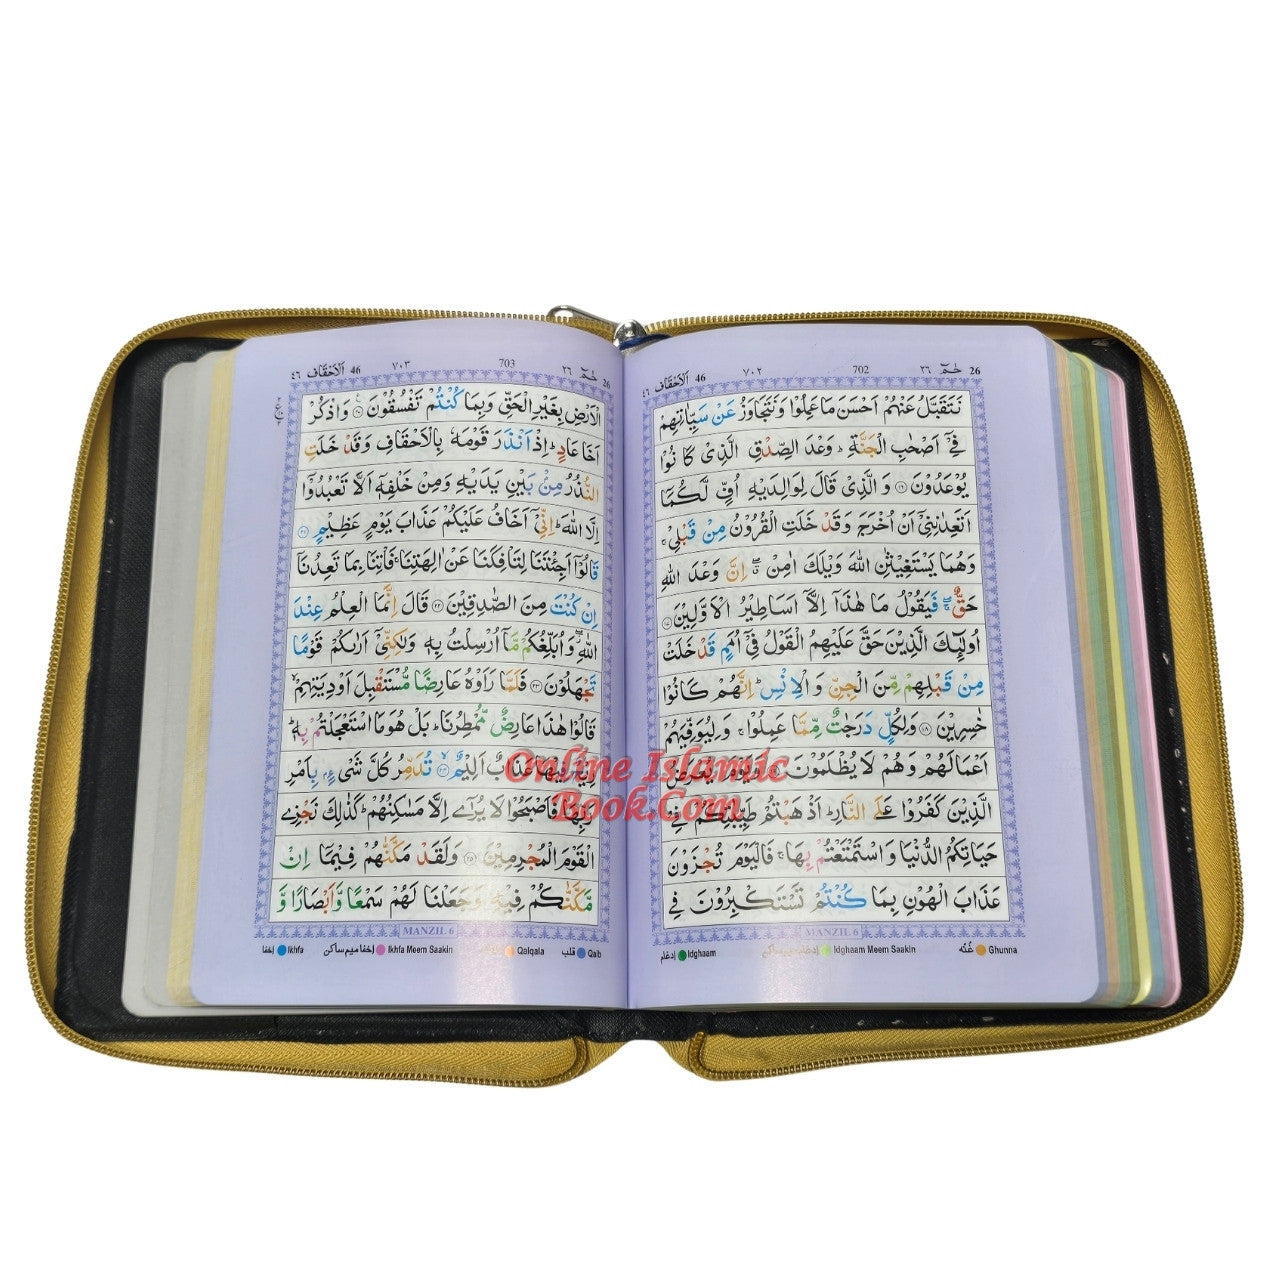 26 حٰمٓ ٢٦ 702 ٧٠٢ 46 اَلْاَحْقَاف ٤٦
نَتَقَبَّلُ عَنْهُمْ اَحْسَنَ مَا عَمِلُوْا وَنَتَجَاوَزُ عَنْ سَيِّاٰتِهِمْ
فِيْٓ اَصْحٰبِ الْجَنَّةِ ؕ وَعْدَ الصِّدْقِ الَّذِيْ كَانُوْا
يُوْعَدُوْنَ ۝۱۶ وَالَّذِيْ قَالَ لِوَالِدَيْهِ اُفٍّ لَّكُمَآ
اَتَعِدٰنِنِيْٓ اَنْ اُخْرَجَ وَقَدْ خَلَتِ الْقُرُوْنُ مِنْ قَبْلِيْ ۚ
وَهُمَا يَسْتَغِيْثٰنِ اللّٰهَ وَيْلَكَ اٰمِنْ ۖ اِنَّ وَعْدَ اللّٰهِ
حَقٌّ ۖ فَيَقُوْلُ مَا هٰذَآ اِلَّآ اَسَاطِيْرُ الْاَوَّلِيْنَ ۝۱۷
اُولٰٓئِكَ الَّذِيْنَ حَقَّ عَلَيْهِمُ الْقَوْلُ فِيْٓ اُمَمٍ قَدْ خَلَتْ
مِنْ قَبْلِهِمْ مِّنَ الْجِنِّ وَالْاِنْسِ ؕ اِنَّهُمْ كَانُوْا
خٰسِرِيْنَ ۝۱۸ وَلِكُلٍّ دَرَجٰتٌ مِّمَّا عَمِلُوْا ۚ وَلِيُوَفِّيَهُمْ
اَعْمَالَهُمْ وَهُمْ لَا يُظْلَمُوْنَ وَيَوْمَ يُعْرَضُ
الَّذِيْنَ كَفَرُوْا عَلَى النَّارِ ؕ اَذْهَبْتُمْ طَيِّبٰتِكُمْ فِيْ
حَيَاتِكُمُ الدُّنْيَا وَاسْتَمْتَعْتُمْ بِهَا ۚ فَالْيَوْمَ تُجْزَوْنَ
عَذَابَ الْهُوْنِ بِمَا كُنْتُمْ تَسْتَكْبِرُوْنَ فِي
MANZIL 6
إدغام Idghaam Idghaam Meem Saakin غُنّه Ghunna
26 حٰمٓ ٢٦ 703 ٧٠٣ 46 اَلْاَحْقَاف ٤٦
الْاَرْضِ بِغَيْرِ الْحَقِّ وَبِمَا كُنْتُمْ تَفْسُقُوْنَ ۝۲۰ وَاذْكُرْ
اَخَا عَادٍ ؕ اِذْ اَنْذَرَ قَوْمَهٗ بِالْاَحْقَافِ وَقَدْ خَلَتِ
النُّذُرُ مِنْۢ بَيْنِ يَدَيْهِ وَمِنْ خَلْفِهٖٓ اَلَّا تَعْبُدُوْٓا
اِلَّا اللّٰهَ ؕ اِنِّيْٓ اَخَافُ عَلَيْكُمْ عَذَابَ يَوْمٍ عَظِيْمٍ ۝۲۱
قَالُوْٓا اَجِئْتَنَا لِتَاْفِكَنَا عَنْ اٰلِهَتِنَا ۚ فَاْتِنَا بِمَا تَعِدُنَآ
اِنْ كُنْتَ مِنَ الصّٰدِقِيْنَ ۝۲۲ قَالَ اِنَّمَا الْعِلْمُ عِنْدَ
اللّٰهِ ۖ وَاُبَلِّغُكُمْ مَّآ اُرْسِلْتُ بِهٖ وَلٰكِنِّيْٓ اَرٰىكُمْ قَوْمًا
تَجْهَلُوْنَ ۝۲۳ فَلَمَّا رَاَوْهُ عَارِضًا مُّسْتَقْبِلَ اَوْدِيَتِهِمْ ۙ
قَالُوْا هٰذَا عَارِضٌ مُّمْطِرُنَا ؕ بَلْ هُوَ مَا اسْتَعْجَلْتُمْ بِهٖ ؕ
رِيْحٌ فِيْهَا عَذَابٌ اَلِيْمٌ ۝۲۴ تُدَمِّرُ كُلَّ شَيْءٍۢ بِاَمْرِ
رَبِّهَا فَاَصْبَحُوْا لَا يُرٰٓى اِلَّا مَسٰكِنُهُمْ ؕ كَذٰلِكَ نَجْزِي
الْقَوْمَ الْمُجْرِمِيْنَ ۝۲۵ وَلَقَدْ مَكَّنّٰهُمْ فِيْمَآ اِنْ
مَّكَّنّٰكُمْ فِيْهِ وَجَعَلْنَا لَهُمْ سَمْعًا وَّاَبْصَارًا وَّ
MANZIL 6
إخفا Ikhfa إخفا ميم ساكن Ikhfa Meem Saakin Qalqala قلب Qalb
Online Islamic
Book.Com